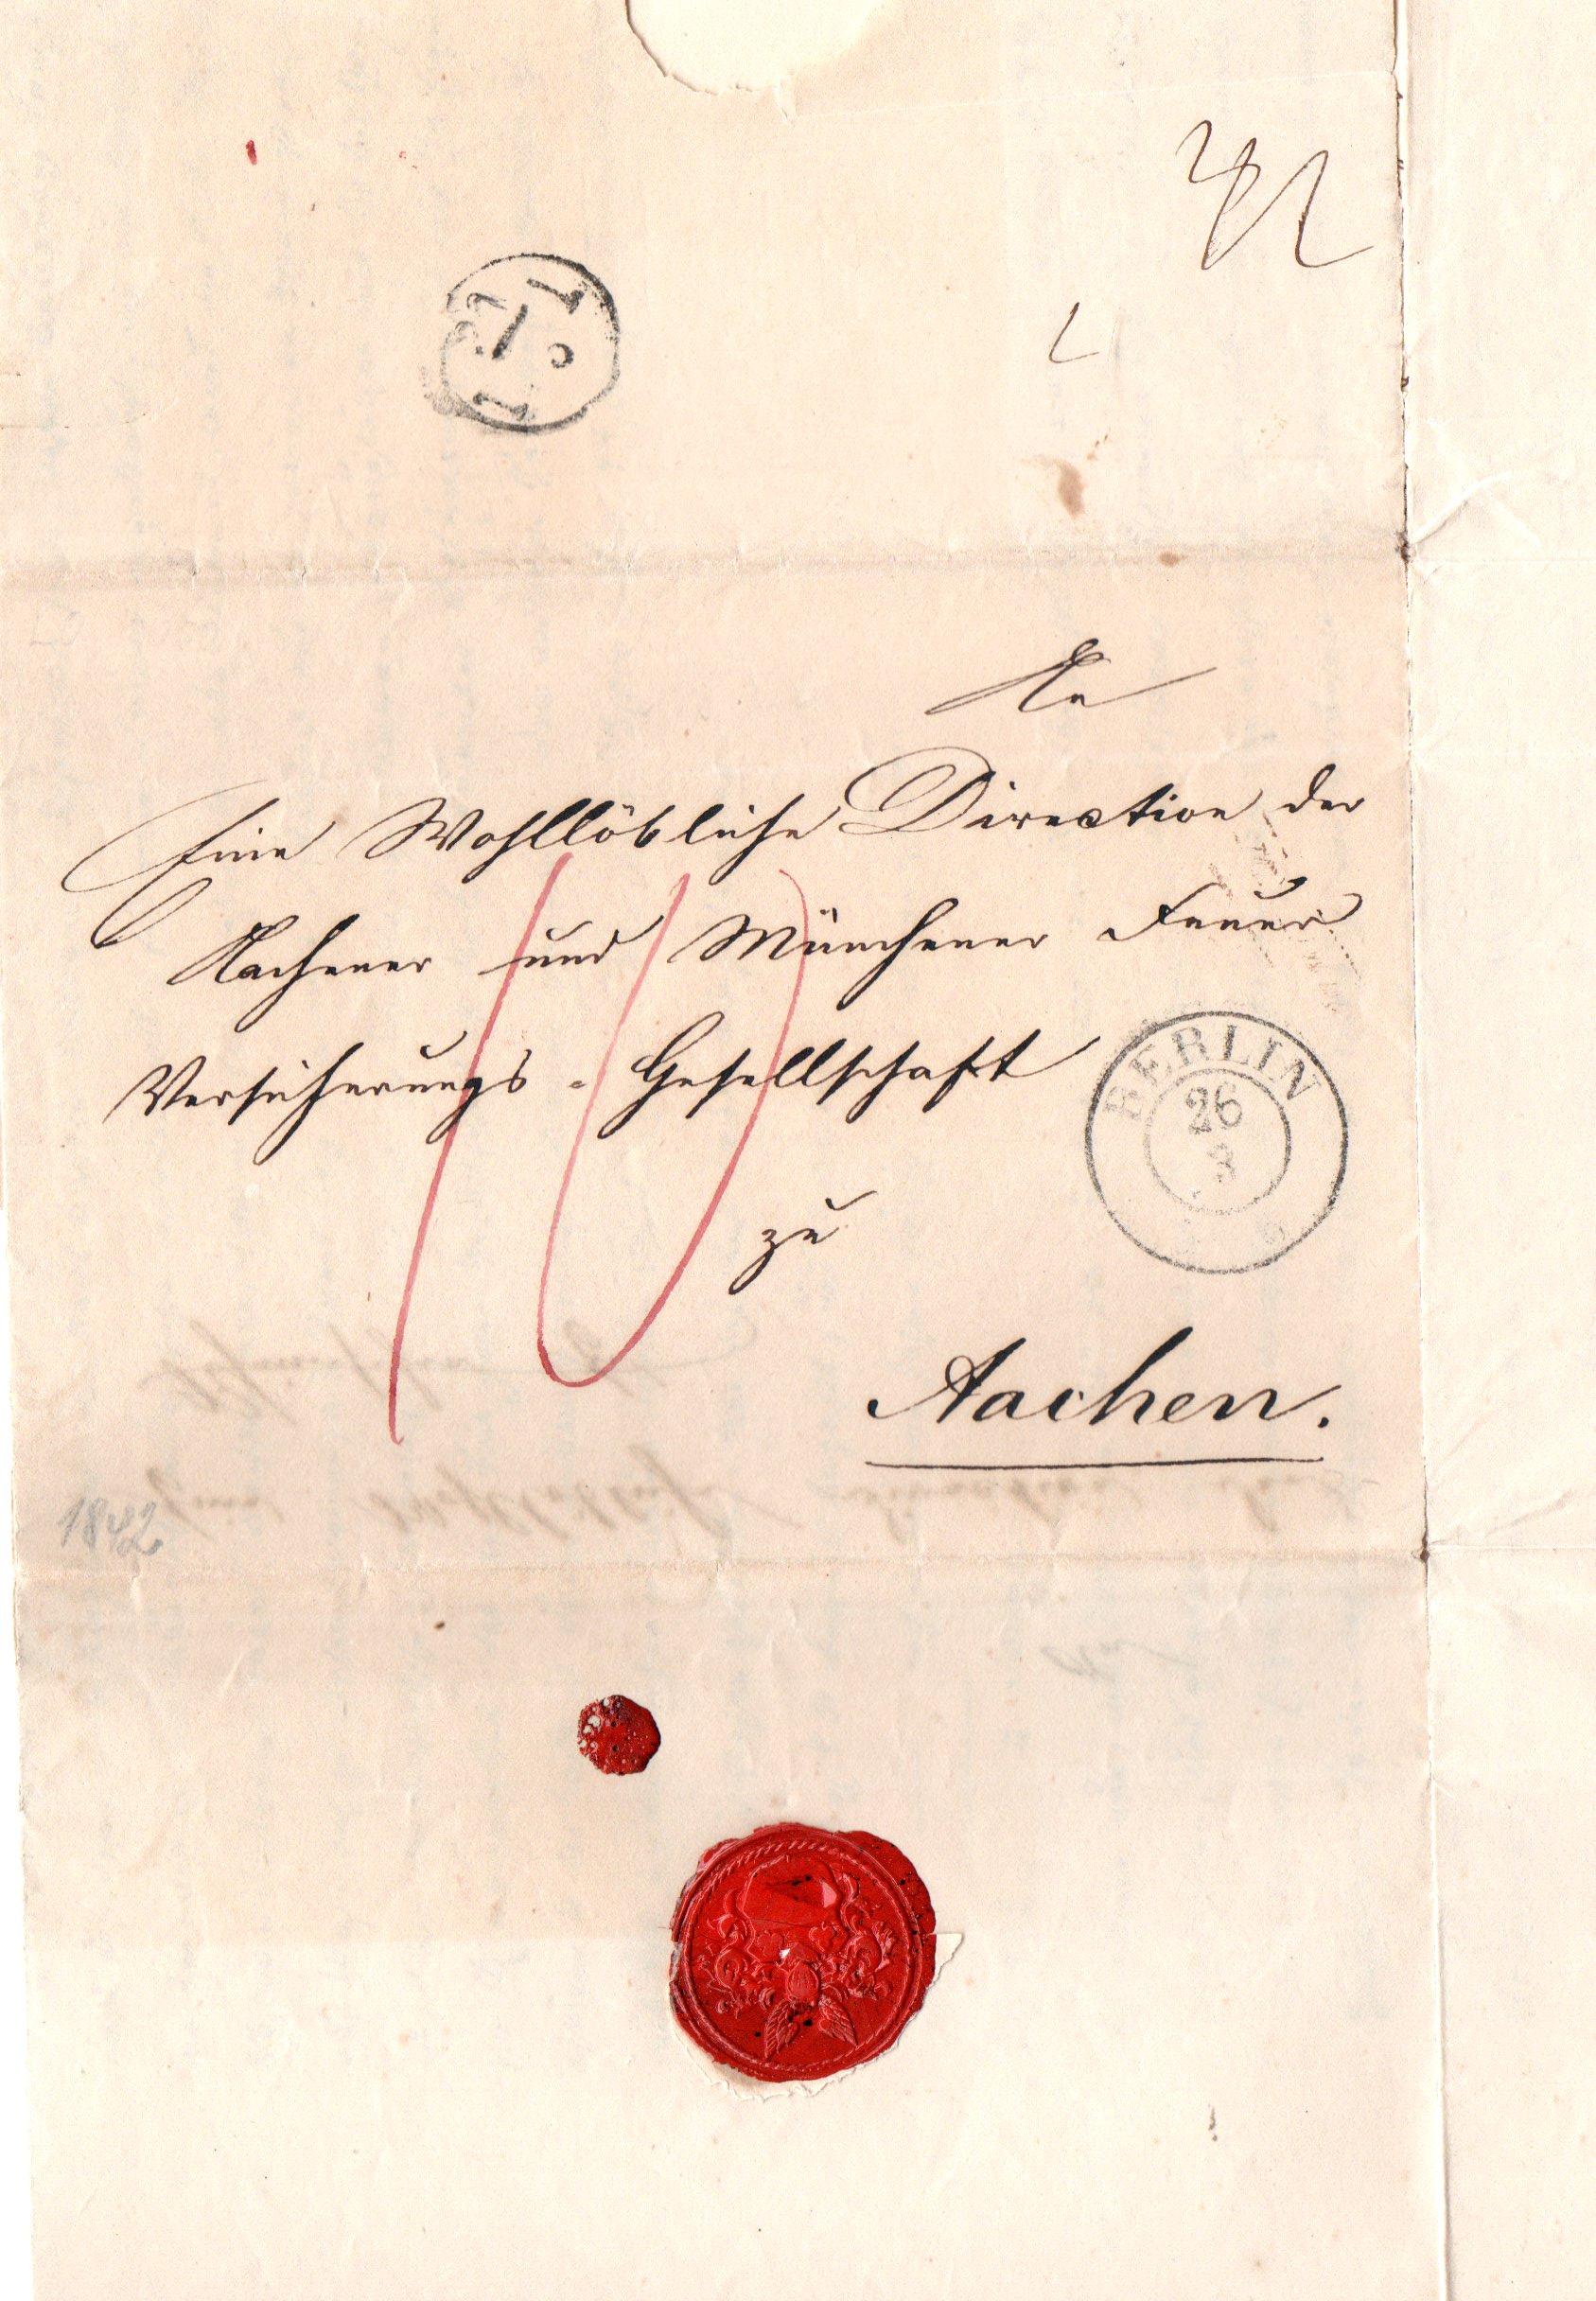 An
Eine Wohllöbliche Direction der
Aachener und Münchener Feuer
Versicherungs = Gesellschaft
10
BERLIN
26
3
zu
Aachen.
1842